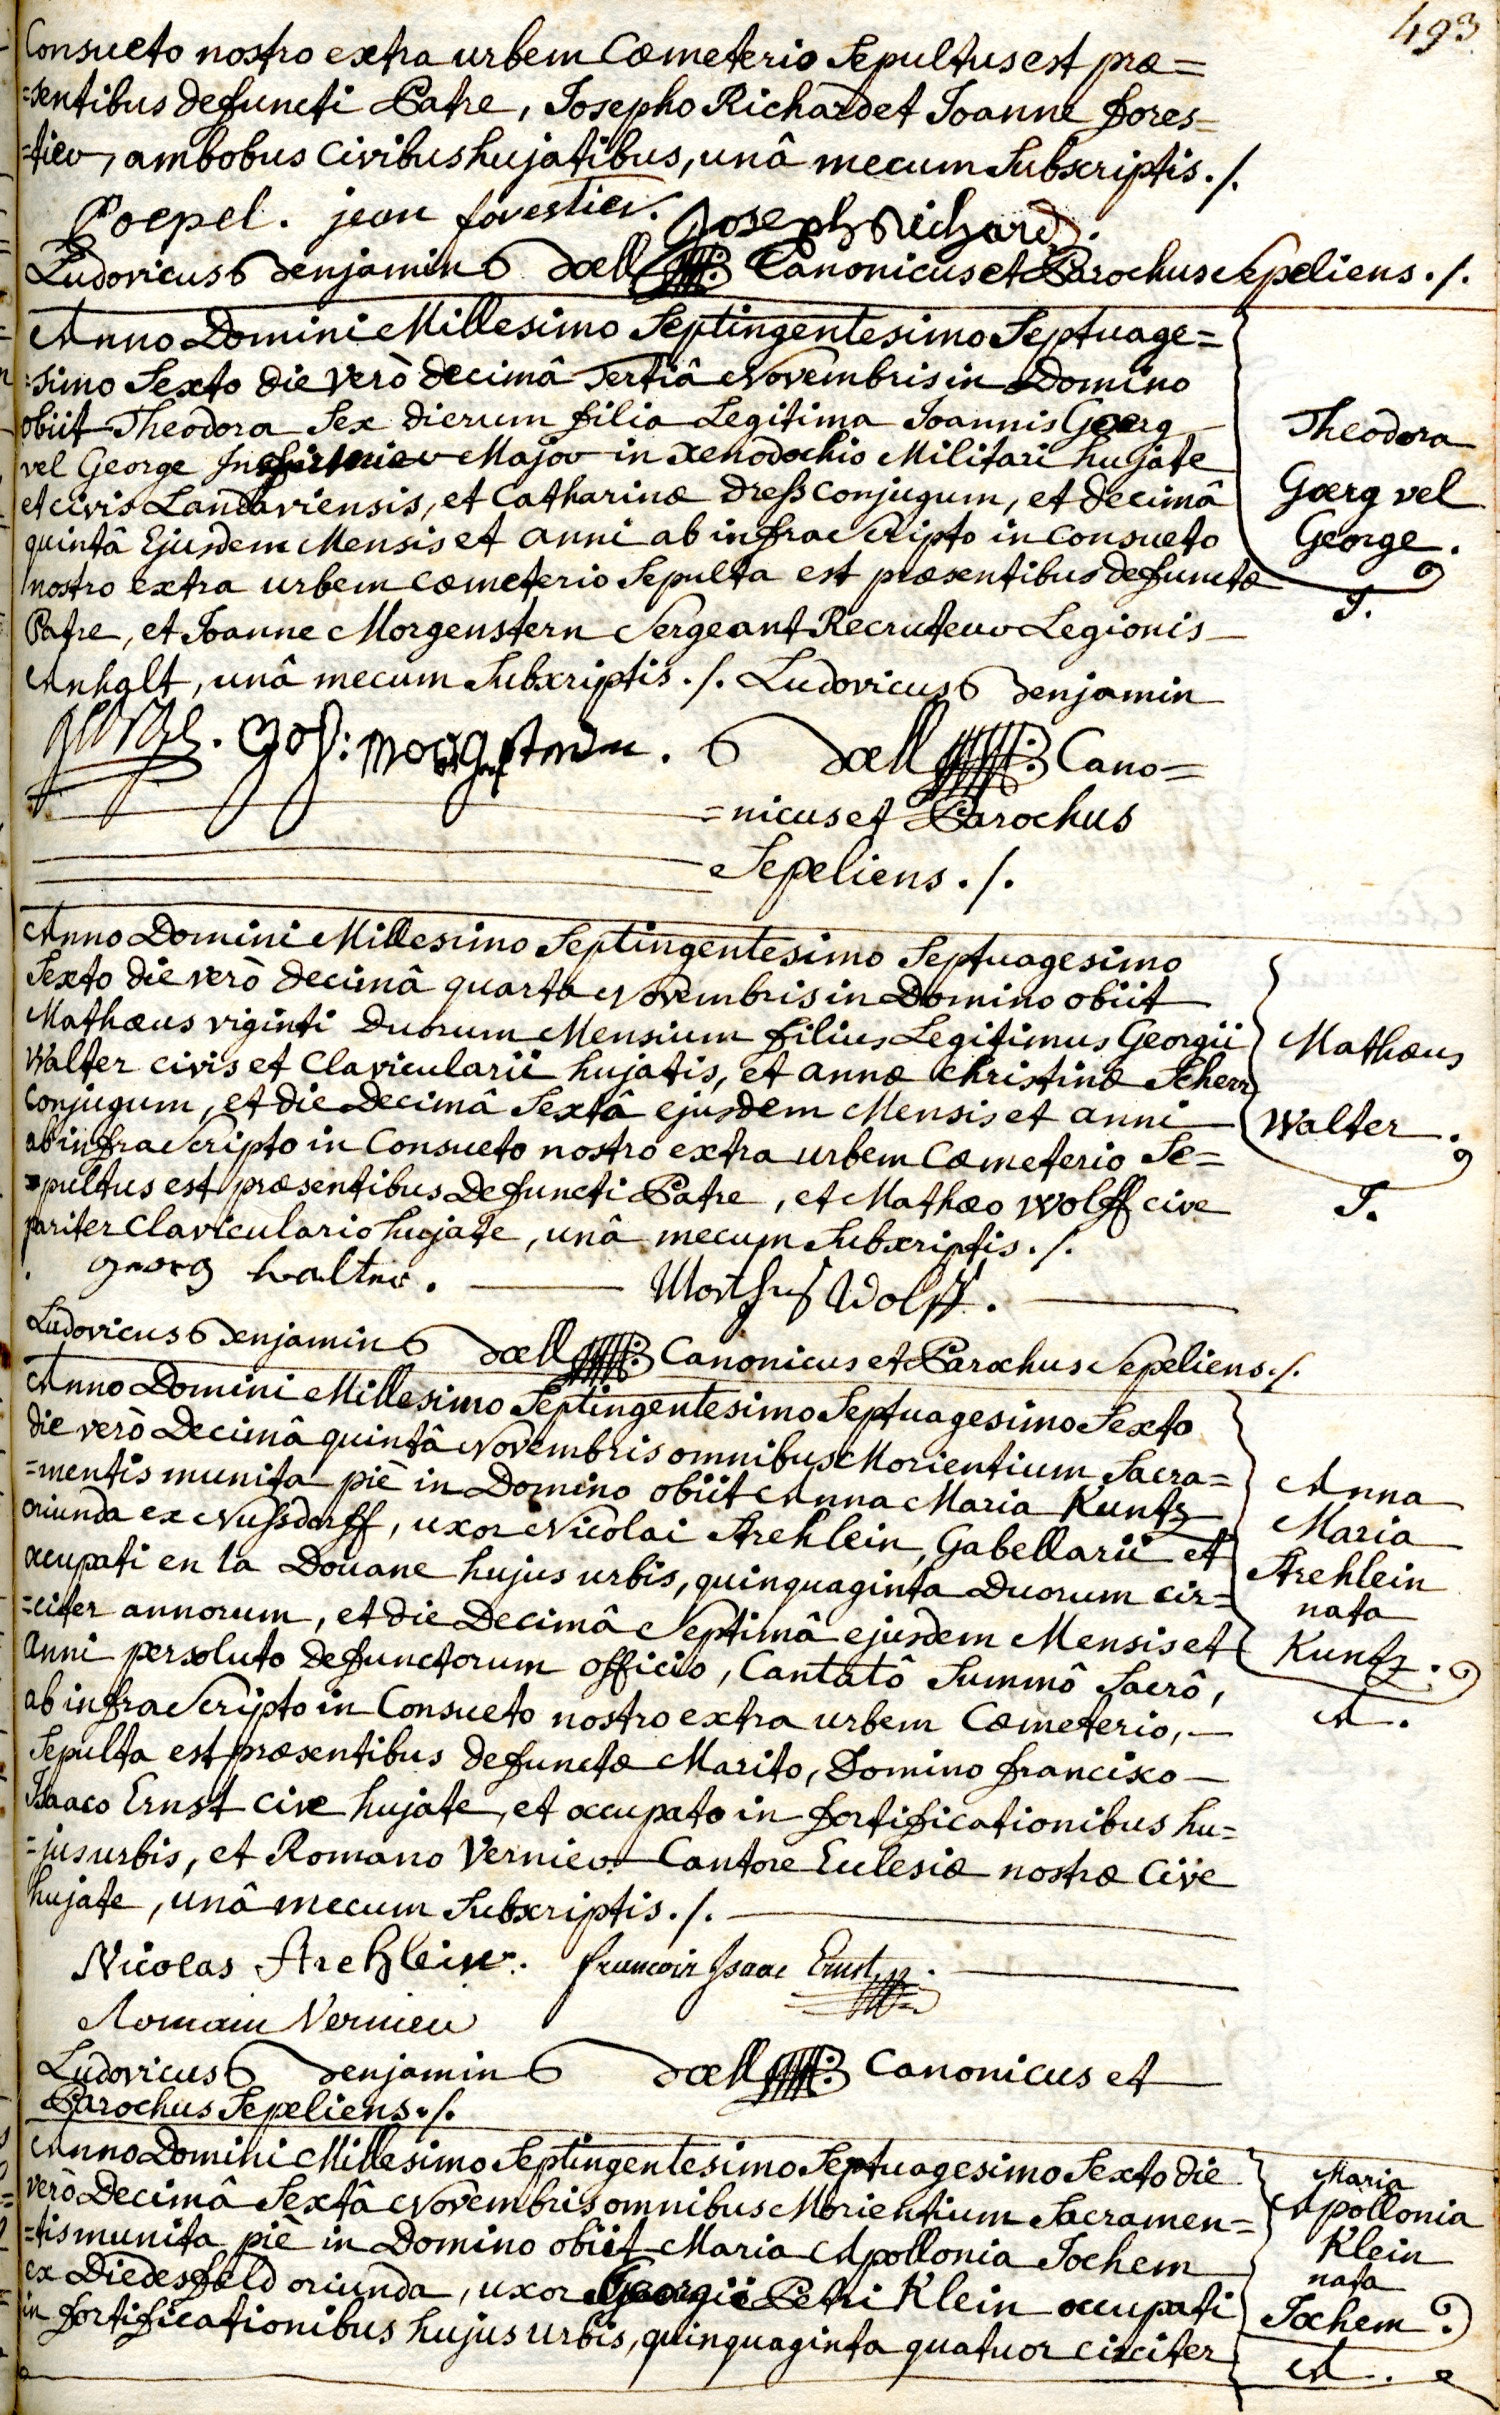 493
Consueto nostro extra urbem Cœmeterio Sepultus est præ=
=sentibus defuncti Patre, Josepho Richard et Joanne fores=
=tier, ambobus Civibus hujatibus, unâ mecum Subscriptis ./.
Poepel. jean forestier. Joseph Richard.
Ludovicus Benjamin Doell Canonicus et Parochus Sepeliens ./.
Anno Domini Millesimo Septingentesimo Septuage=
=simo Sexto die verò decimâ Tertiâ Novembris in Domino
obiit Theodora Sex dierum filia Legitima Joannis Gœrg
vel George Infirmier Major in Xenodochio Militari hujate
et civis Landaviensis, et Catharinæ Dress conjugum, et decimâ
quintâ Ejusdem Mensis et anni ab infra Scripto in Consueto
nostro extra urbem cœmeterio Sepulta est præsentibus defunctæ
Patre, et Joanne Morgenstern Sergeant Recruteur Legionis
Anhalt, unâ mecum Subscriptis ./. Ludovicus Benjamin
George. Joh: Morgenstern. Doell Cano=
=nicus et Parochus
Sepeliens ./.
Theodora
Gœrg vel
George.
T.
Anno Domini Millesimo Septingentesimo Septuagesimo
Sexto die verò decimâ quarta Novembris in Domino obiit
Mathæus viginti Duorum Mensium filius Legitimus Georgii
Walter civis et Clavicularii hujatis, et annæ Christinæ Scherr
Conjugum, et die Decimâ Sextâ ejusdem Mensis et anni
ab infra Scripto in Consueto nostro extra urbem Cœmeterio Se=
=pultus est præsentibus Defuncti Patre, et Mathæo Wolff cive
pariter Claviculario hujate, unâ mecum Subscriptis ./.
georg Walter. Mathes Wolff.
Ludovicus Benjamin Doell Canonicus et Parochus Sepeliens ./.
Mathæus
Walter.
T.
Anno Domini Millesimo Septingentesimo Septuagesimo Sexto
die verò Decimâ quintâ Novembris omnibus Morientium Sacra=
=mentis munita piè in Domino obiit Anna Maria Kuntz
oriunda ex Nussdorff, uxor Nicolai Arehlein, Gabellarii et
occupati en la Douane hujus urbis, quinquaginta Duorum cir=
=citer annorum, et die Decimâ Septimâ ejusdem Mensis et
anni persoluto Defunctorum officio, Cantatô Summô Sacrô,
ab infra Scripto in Consueto nostro extra urbem Cœmeterio,
Sepulta est præsentibus defunctæ Marito, Domino francisco
Isaaco Ernst cive hujate, et occupato in fortificationibus hu=
=jus urbis, et Romano Vernier Cantore Eulesiæ nostræ Cive
hujate, unâ mecum Subscriptis ./.
Nicolas Arehlein. francois Isaac Ernst
Romain Vernier
Ludovicus Benjamin Doell Canonicus et
Parochus Sepeliens ./.
Anna
Maria
Arehlein
nata
Kuntz.
A.
Anno Domini Millesimo Septingentesimo Septuagesimo Sexto die
verò Decimâ Sextâ Novembris omnibus Morientium Sacramen=
=tis munita piè in Domino obiit Maria Apollonia Jochem
ex Diedesfeld oriunda, uxor Georgii Petri Klein occupati
in fortificationibus hujus urbis, quinquaginta quatuor circiter
Maria
Apollonia
Klein
nata
Jochem.
A.